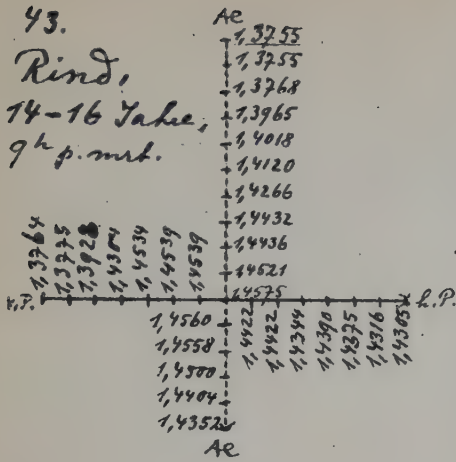 43.
Rind,
14-16 Jahre,
9h p. mrt.
Ae
1,3755
1,3755
1,3768
1,3965
1,4018
1,4120
1,4266
1,4432
1,4436
1,4521
1,4575
v.P.
1,3764
1,3775
1,3928
1,4304
1,4534
1,4539
1,4539
h.P.
1,4422
1,4422
1,4344
1,4390
1,4375
1,4316
1,4305
1,4560
1,4558
1,4500
1,4404
1,4352
Ae